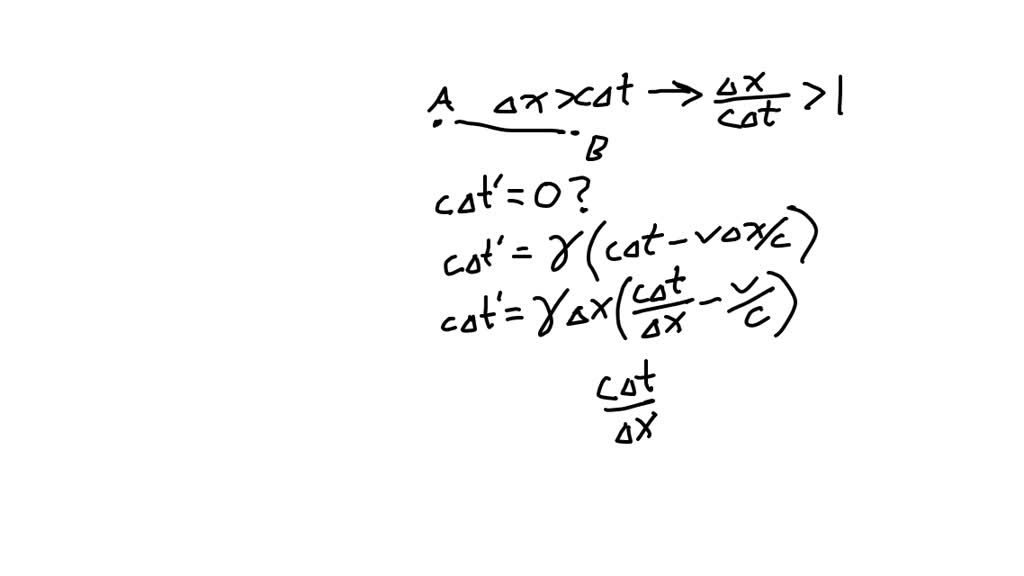 A Δx > cΔt → Δx/cΔt > 1
B
cΔt' = 0?
cΔt' = γ(cΔt - vΔx/c)
cΔt' = γΔx(cΔt/Δx - v/c)
cΔt/Δx